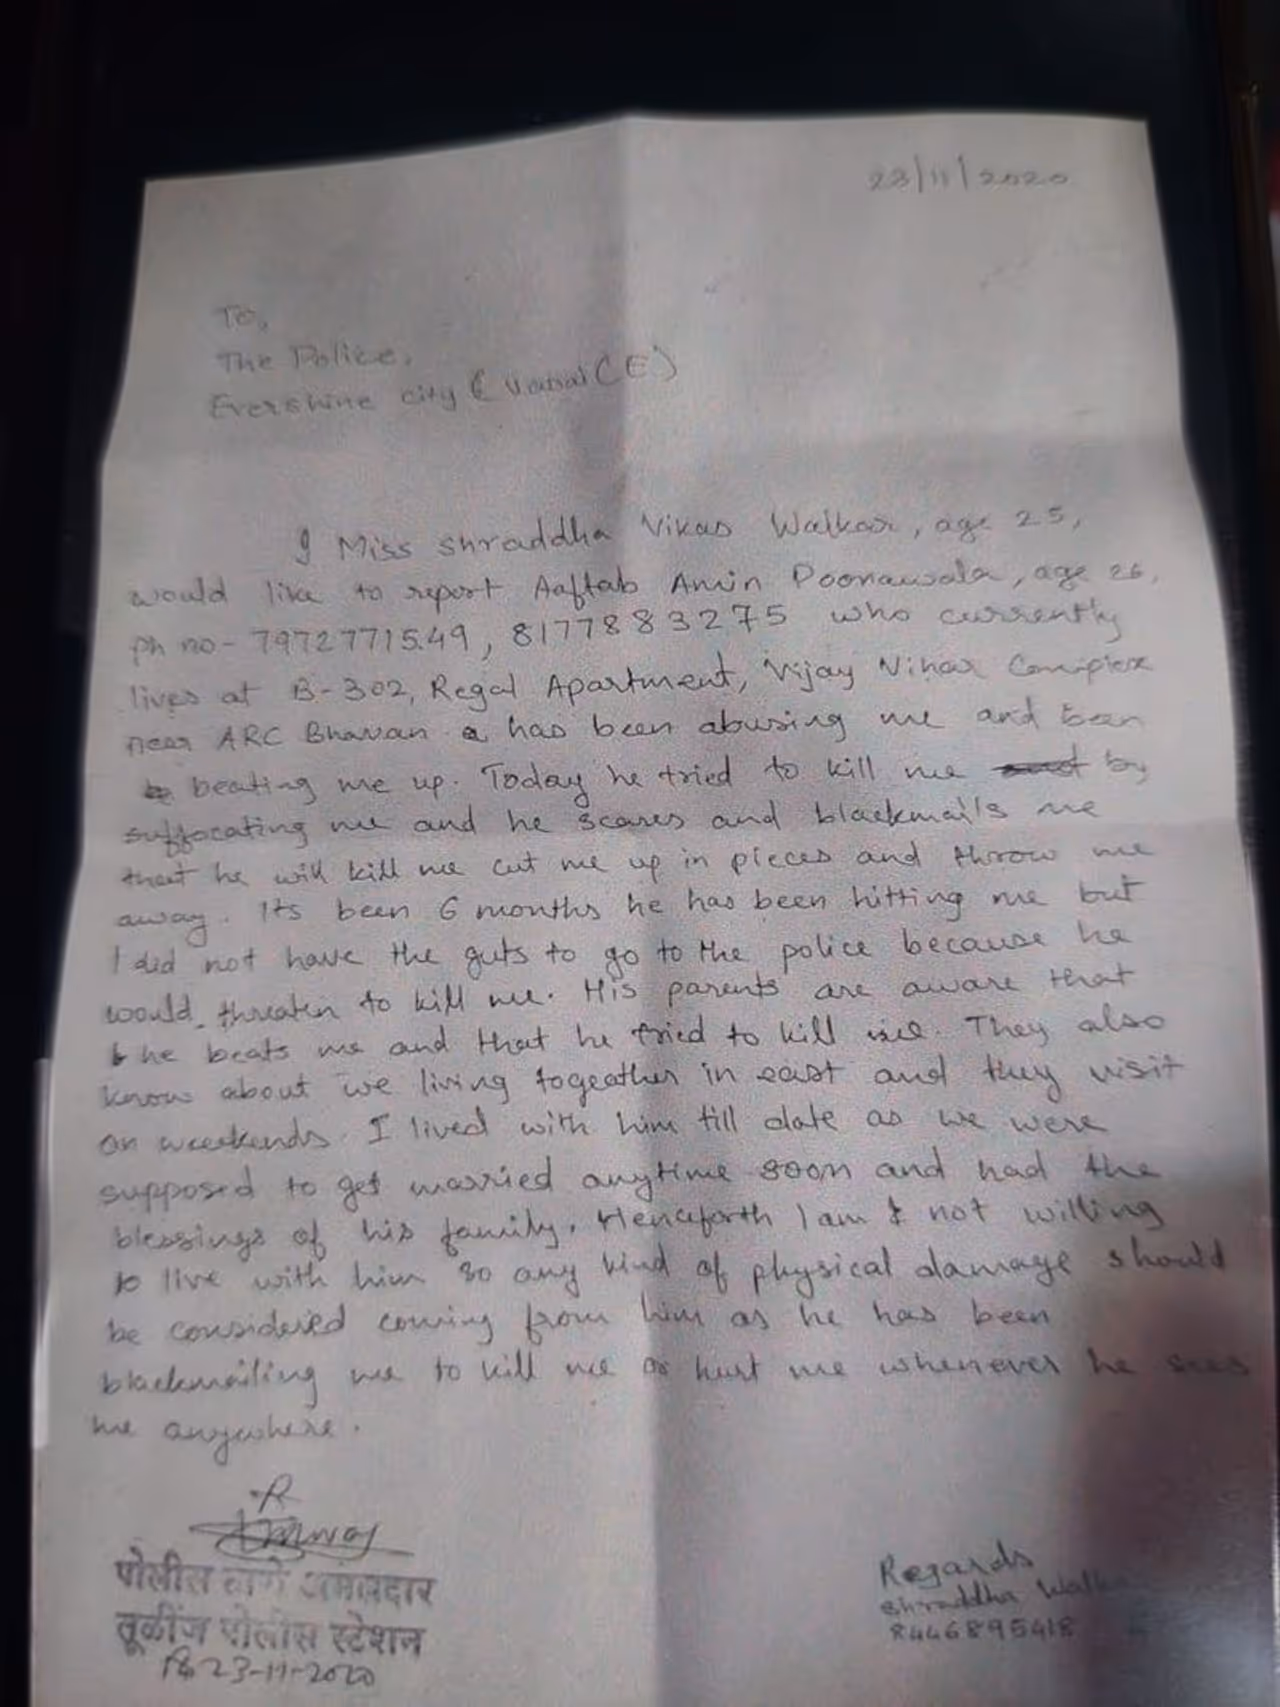 23/11/2020
To,
The Police,
Evershine city ( Vasai (E)
I Miss Shraddha Vikas Walkar, age 25,
would like to report Aaftab Amin Poonawala, age 26,
ph no- 7972771549, 8177883275 who currently
lives at B-302, Regal Apartment, Vijay Vihar Complex
near ARC Bhavan has been abusing me and been
beating me up. Today he tried to kill me by
suffocating me and he scares and blackmails me
that he will kill me cut me up in pieces and throw me
away. Its been 6 months he has been hitting me but
I did not have the guts to go to the police because he
would threaten to kill me. His parents are aware that
he beats me and that he tried to kill me. They also
know about we living togeather in east and they visit
on weekends. I lived with him till date as we were
supposed to get married anytime soon and had the
blessings of his family. Henceforth I am not willing
to live with him so any kind of physical damage should
be considered coming from him as he has been
blackmailing me to kill me or hurt me whenever he sees
me anywhere.
पोलीस ठाणे अंमलदार
तूळींज पोलीस स्टेशन
23-11-2020
Regards
Shraddha Walkar
8446895418